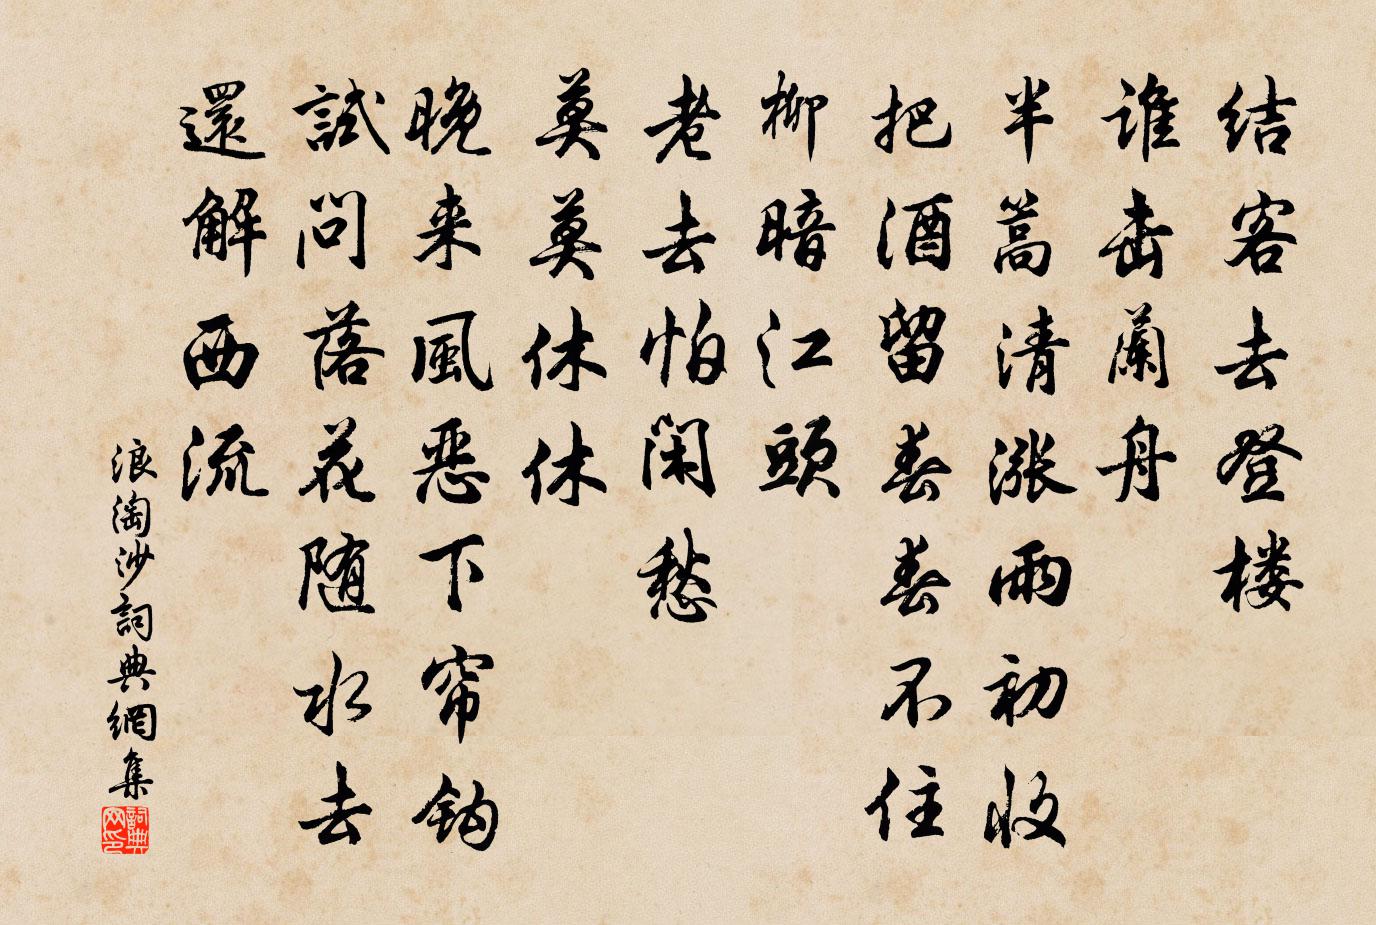 结客去登楼
谁击蘭舟
半篙清涨雨初收
把酒留春春不住
柳暗江頭
老去怕闲愁
莫莫休休
晚来風恶下帘钩
試问落花随水去
還解西流
浪淘沙詞典網集
詞典网印